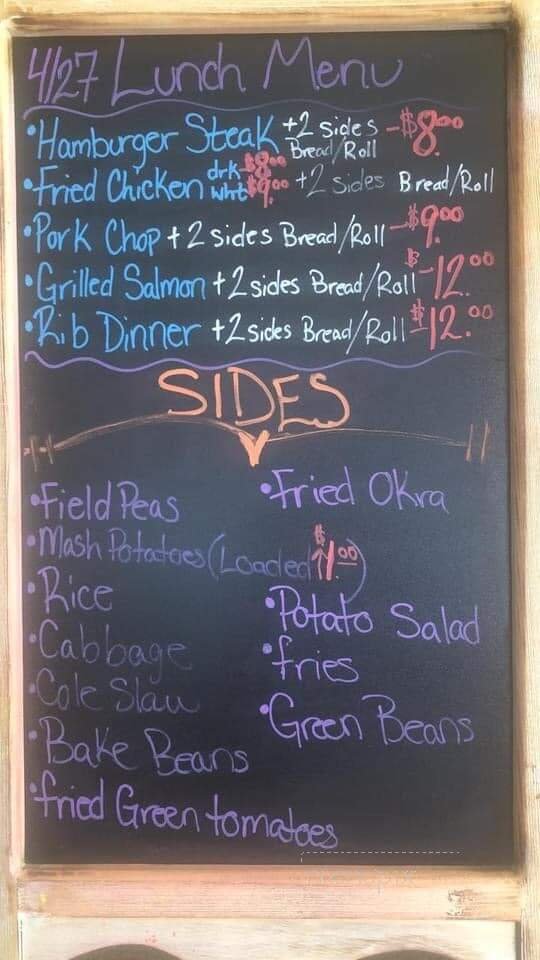 4/27 Lunch Menu
•Hamburger Steak +2 sides Bread/Roll -$8.00
•Fried Chicken drk $8.00 wht $9.00 +2 Sides Bread/Roll
•Pork Chop +2 sides Bread/Roll -$9.00
•Grilled Salmon +2 sides Bread/Roll $-12.00
•Rib Dinner +2 sides Bread/Roll -$12.00
SIDES
•Field Peas
•Mash Potatoes (Loaded $1.00)
•Rice
•Cabbage
•Cole Slaw
•Bake Beans
•fried Green tomatoes
•Fried Okra
•Potato Salad
•fries
•Green Beans